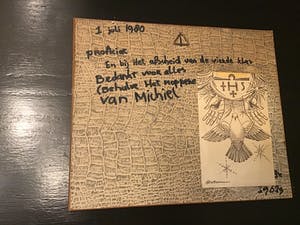 1 juli 1980
proficiat
En bij Het afscheid van de vierde klas
Bedankt voor alles
(behalve Het
van Michiel
IHS